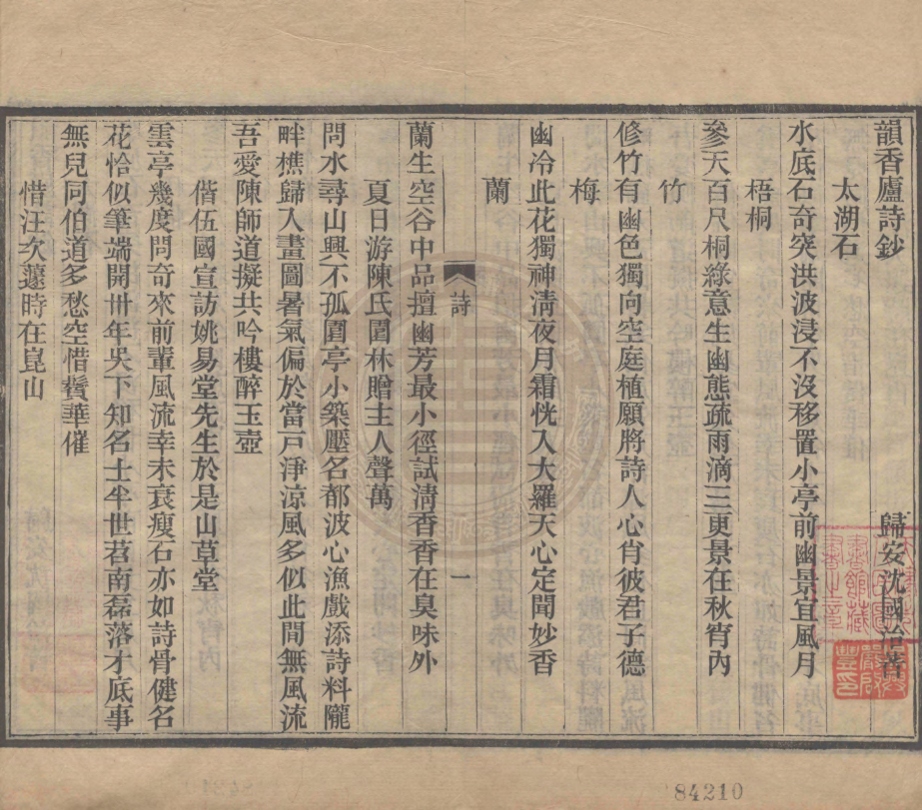 韻香廬詩鈔
歸安沈國治著
太湖石
水底石奇突洪波浸不沒移置小亭前幽景宜風月
梧桐
參天百尺桐綠意生幽態疏雨滴三更景在秋宵內
竹
修竹有幽色獨向空庭植願將詩人心肖彼君子德
梅
幽冷此花獨神淸夜月霜恍入大羅天心定聞妙香
蘭
詩
一
蘭生空谷中品擅幽芳最小徑試淸香香在臭味外
夏日游陳氏園林贈主人聲萬
問水尋山興不孤園亭小築壓名都波心漁戲添詩料隴
畔樵歸入畫圖暑氣偏於當戸淨涼風多似此間無風流
吾愛陳師道擬共吟樓醉玉壺
偕伍國宣訪姚易堂先生於是山草堂
雲亭幾度問奇來前輩風流幸未衰瘦石亦如詩骨健名
花恰似筆端開卅年吳下知名士半世苕南磊落才底事
無兒同伯道多愁空惜鬢華催
惜汪次蘧時在崑山
84210